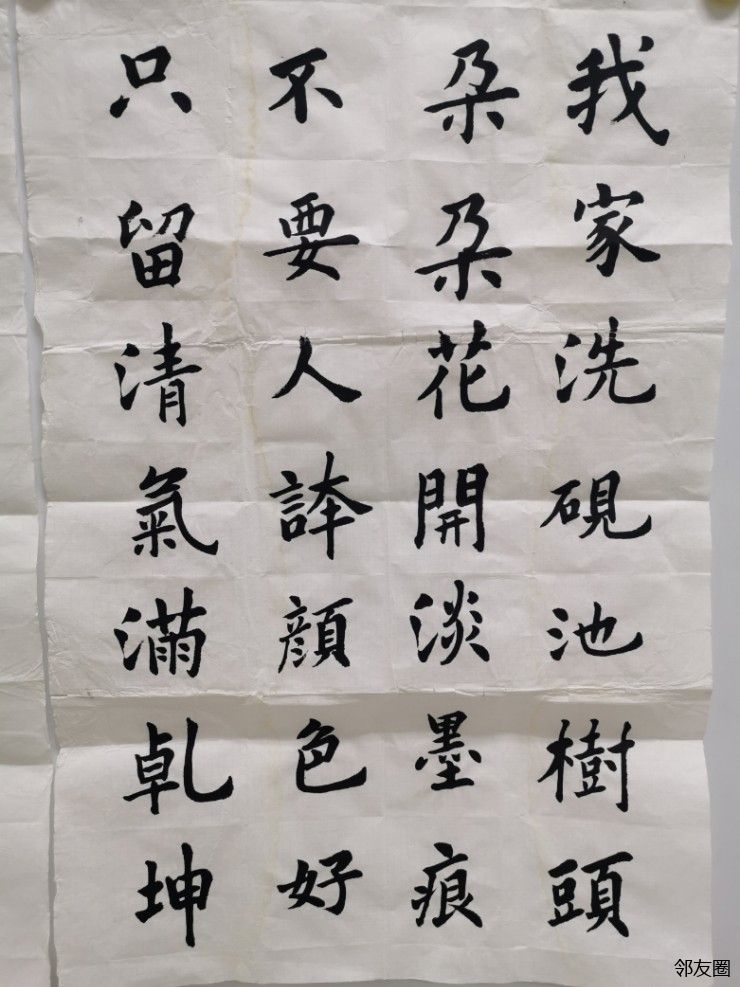 我家洗硯池樹頭
朶朶花開淡墨痕
不要人誇顔色好
只留清氣滿乾坤
邻友圈